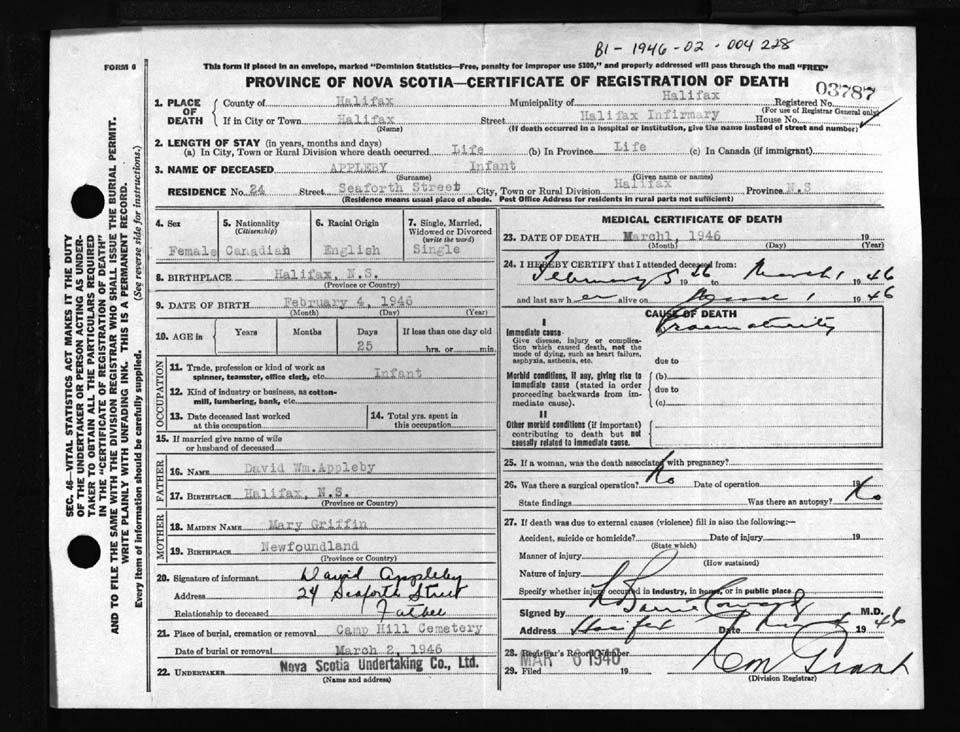 B1-1946-02-004228
FORM 6
This form if placed in an envelope, marked "Dominion Statistics—Free, penalty for improper use $300," and properly addressed will pass through the mail "FREE"
PROVINCE OF NOVA SCOTIA—CERTIFICATE OF REGISTRATION OF DEATH
03787
1. PLACE OF DEATH { County of Halifax Municipality of Halifax Registered No.
(For use of Registrar General only)
If in City or Town Halifax Street Halifax Infirmary House No.
(Name) (If death occurred in a hospital or institution, give the name instead of street and number)
2. LENGTH OF STAY (in years, months and days)
(a) In City, Town or Rural Division where death occurred Life (b) In Province Life (c) In Canada (if immigrant)
3. NAME OF DECEASED APPLEBY Infant
(Surname) (Given name or names)
RESIDENCE No. 24 Street Seaforth Street City, Town or Rural Division Halifax Province N.S
(Residence means usual place of abode. Post Office Address for residents in rural parts not sufficient)
4. Sex 5. Nationality 6. Racial Origin 7. Single, Married,
(Citizenship) Widowed or Divorced
(write the word)
Female Canadian English Single
8. BIRTHPLACE Halifax, N.S.
(Province or Country)
9. DATE OF BIRTH February 4, 1946
(Month) (Day) (Year)
10. AGE in Years Months Days If less than one day old
25 hrs. or min.
OCCUPATION
11. Trade, profession or kind of work as
spinner, teamster, office clerk, etc. Infant
12. Kind of industry or business, as cotton-
mill, lumbering, bank, etc.
13. Date deceased last worked
at this occupation
14. Total yrs. spent in
this occupation
15. If married give name of wife
or husband of deceased
FATHER
16. NAME David Wm.Appleby
17. BIRTHPLACE Halifax, N.S.
(Province or Country)
MOTHER
18. MAIDEN NAME Mary Griffin
19. BIRTHPLACE Newfoundland
(Province or Country)
20. Signature of informant David Appleby
Address 24 Seaforth Street
Relationship to deceased Father
21. Place of burial, cremation or removal Camp Hill Cemetery
Date of burial or removal March 2, 1946
22. UNDERTAKER Nova Scotia Undertaking Co., Ltd.
(Name and address)
MEDICAL CERTIFICATE OF DEATH
23. DATE OF DEATH March1, 1946 19
(Month) (Day) (Year)
24. I HEREBY CERTIFY that I attended deceased from:
February 5 1946 March 1 1946
and last saw h er alive on 1 1946
CAUSE OF DEATH
I
Immediate cause Praematurity
Give disease, injury or complica-
tion which caused death, not the
mode of dying, such as heart failure,
asphyxia, asthenia, etc. due to
Morbid conditions, if any, giving rise to
immediate cause (stated in order
proceeding backwards from im-
mediate cause).
(b)
due to
(c)
II
Other morbid conditions (if important)
contributing to death but not
causally related to immediate cause.
25. If a woman, was the death associated with pregnancy?
26. Was there a surgical operation? No Date of operation 19
State findings Was there an autopsy? No
27. If death was due to external causes (violence) fill in also the following:—
Accident, suicide or homicide? Date of injury 19
(State which)
Manner of injury
(How sustained)
Nature of injury
Specify whether injury occurred in industry, in home, or in public place
Signed by M.D.
Address Halifax Date 1946
28. Registrar's Record Number
29. Filed MAR 6 1946 19
(Division Registrar)
SEC. 46—VITAL STATISTICS ACT MAKES IT THE DUTY
OF THE UNDERTAKER OR PERSON ACTING AS UNDER-
TAKER TO OBTAIN ALL THE PARTICULARS REQUIRED
IN THE "CERTIFICATE OF REGISTRATION OF DEATH"
AND TO FILE THE SAME WITH THE DIVISION REGISTRAR WHO SHALL ISSUE THE BURIAL PERMIT.
WRITE PLAINLY WITH UNFADING INK. THIS IS A PERMANENT RECORD.
Every item of information should be carefully supplied. (See reverse side for instructions.)